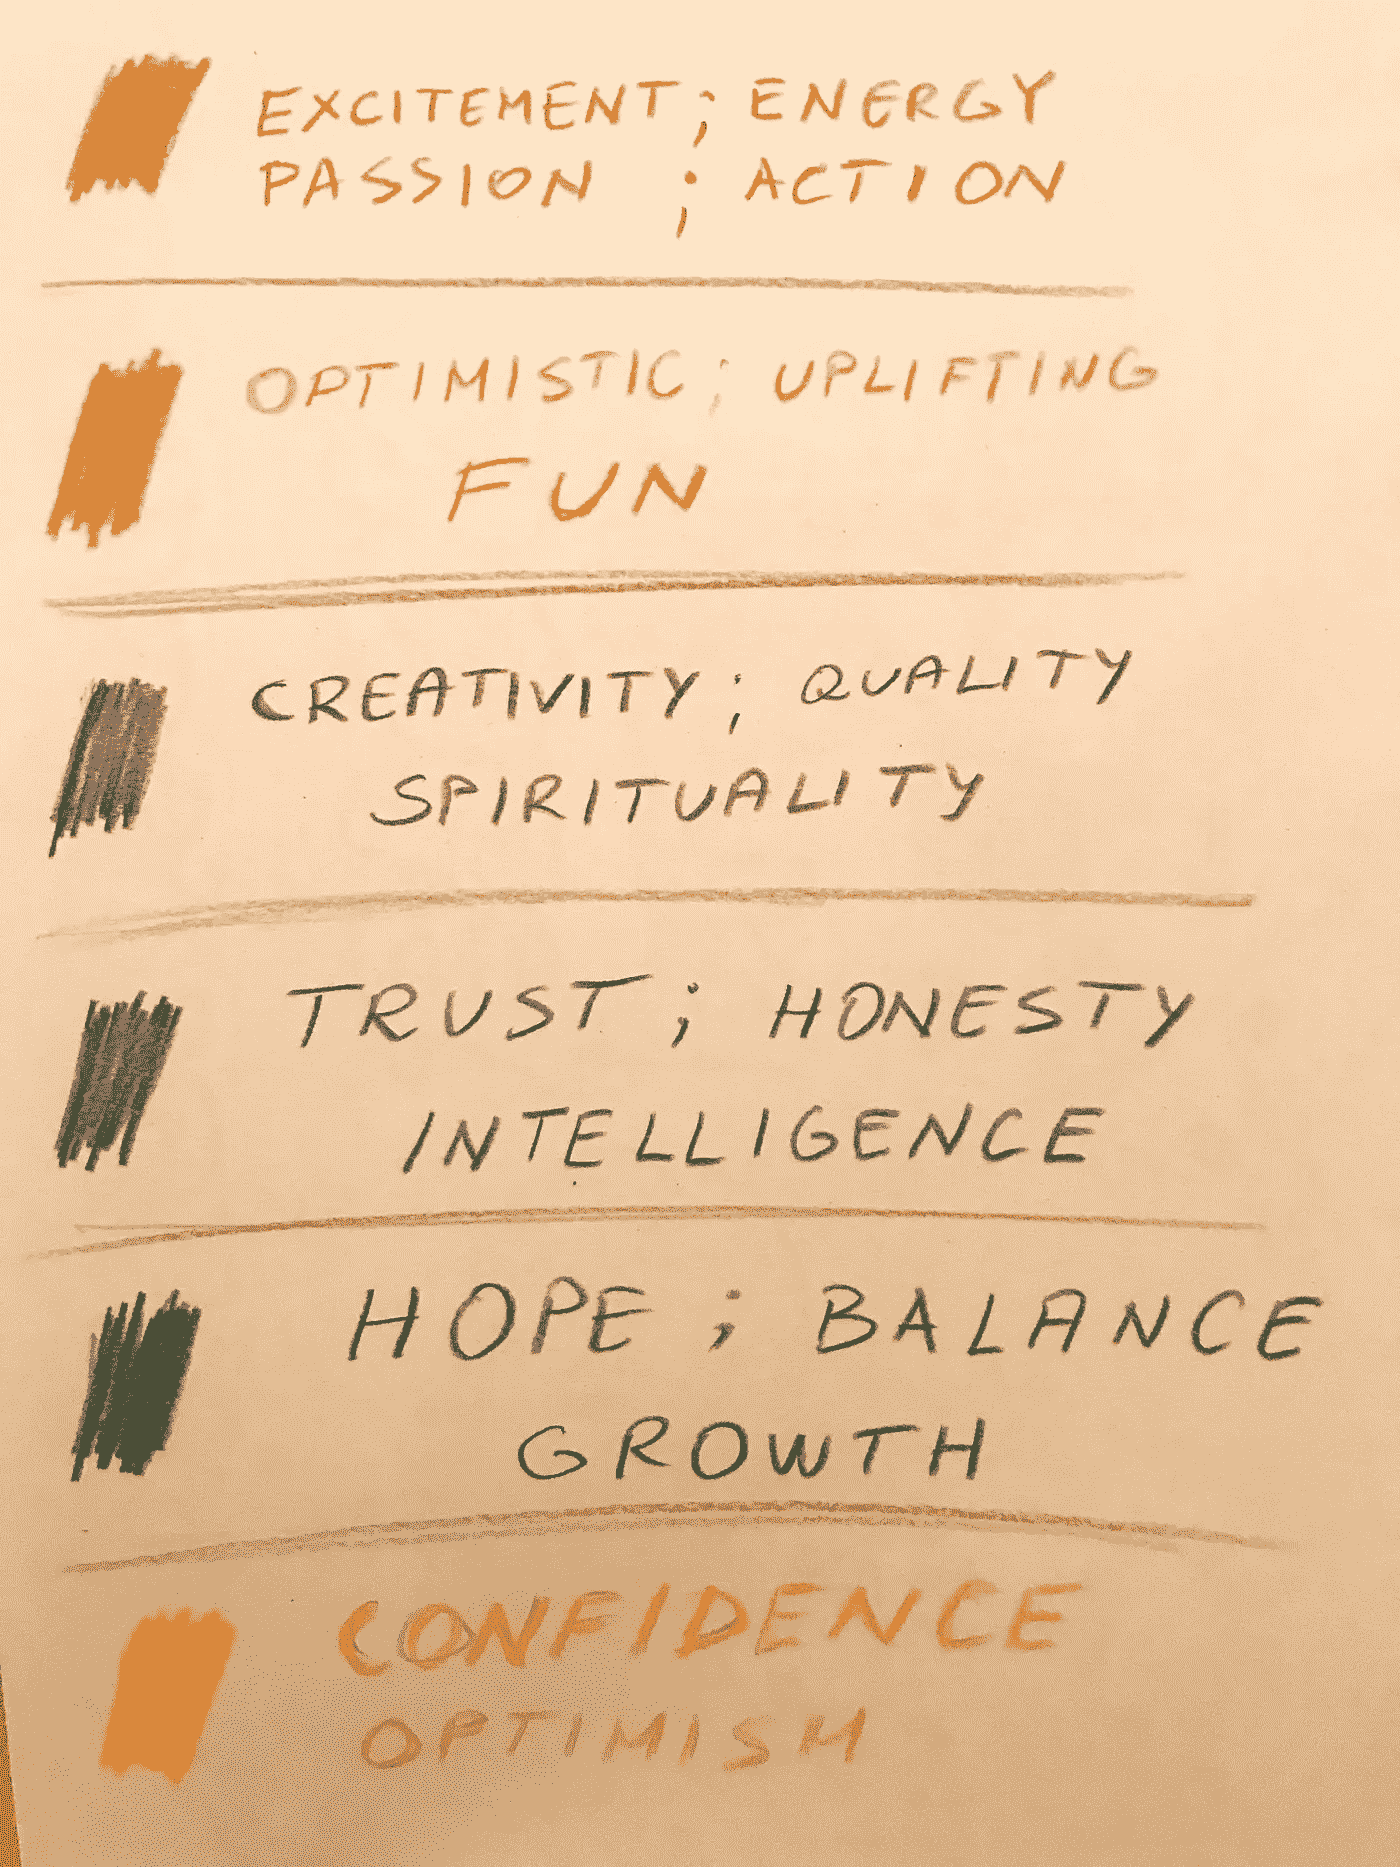 EXCITEMENT; ENERGY
PASSION ; ACTION
OPTIMISTIC; UPLIFTING
FUN
CREATIVITY; QUALITY
SPIRITUALITY
TRUST; HONESTY
INTELLIGENCE
HOPE ; BALANCE
GROWTH
CONFIDENCE
OPTIMISM